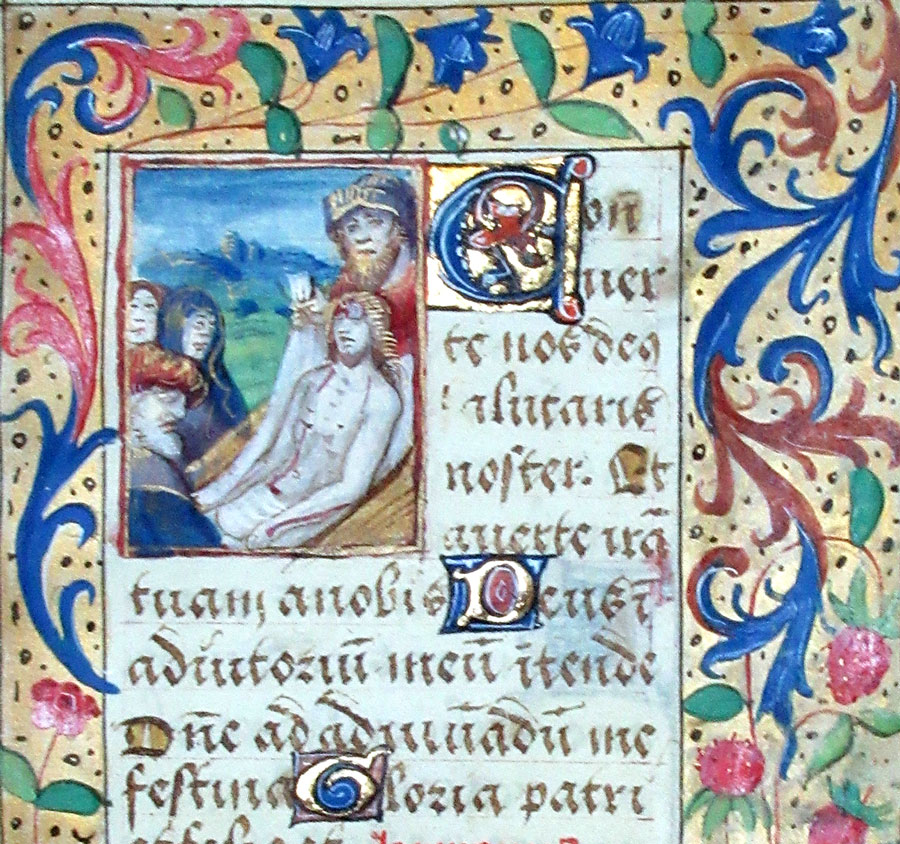 Con̄
uer
te nos deꝯ
alutaris
noster. Et
auerte irā
tuam anobis Deus ī
adiutoriū meū ītende
Dn̄e ad adiuuādū me
festina Gloria patri